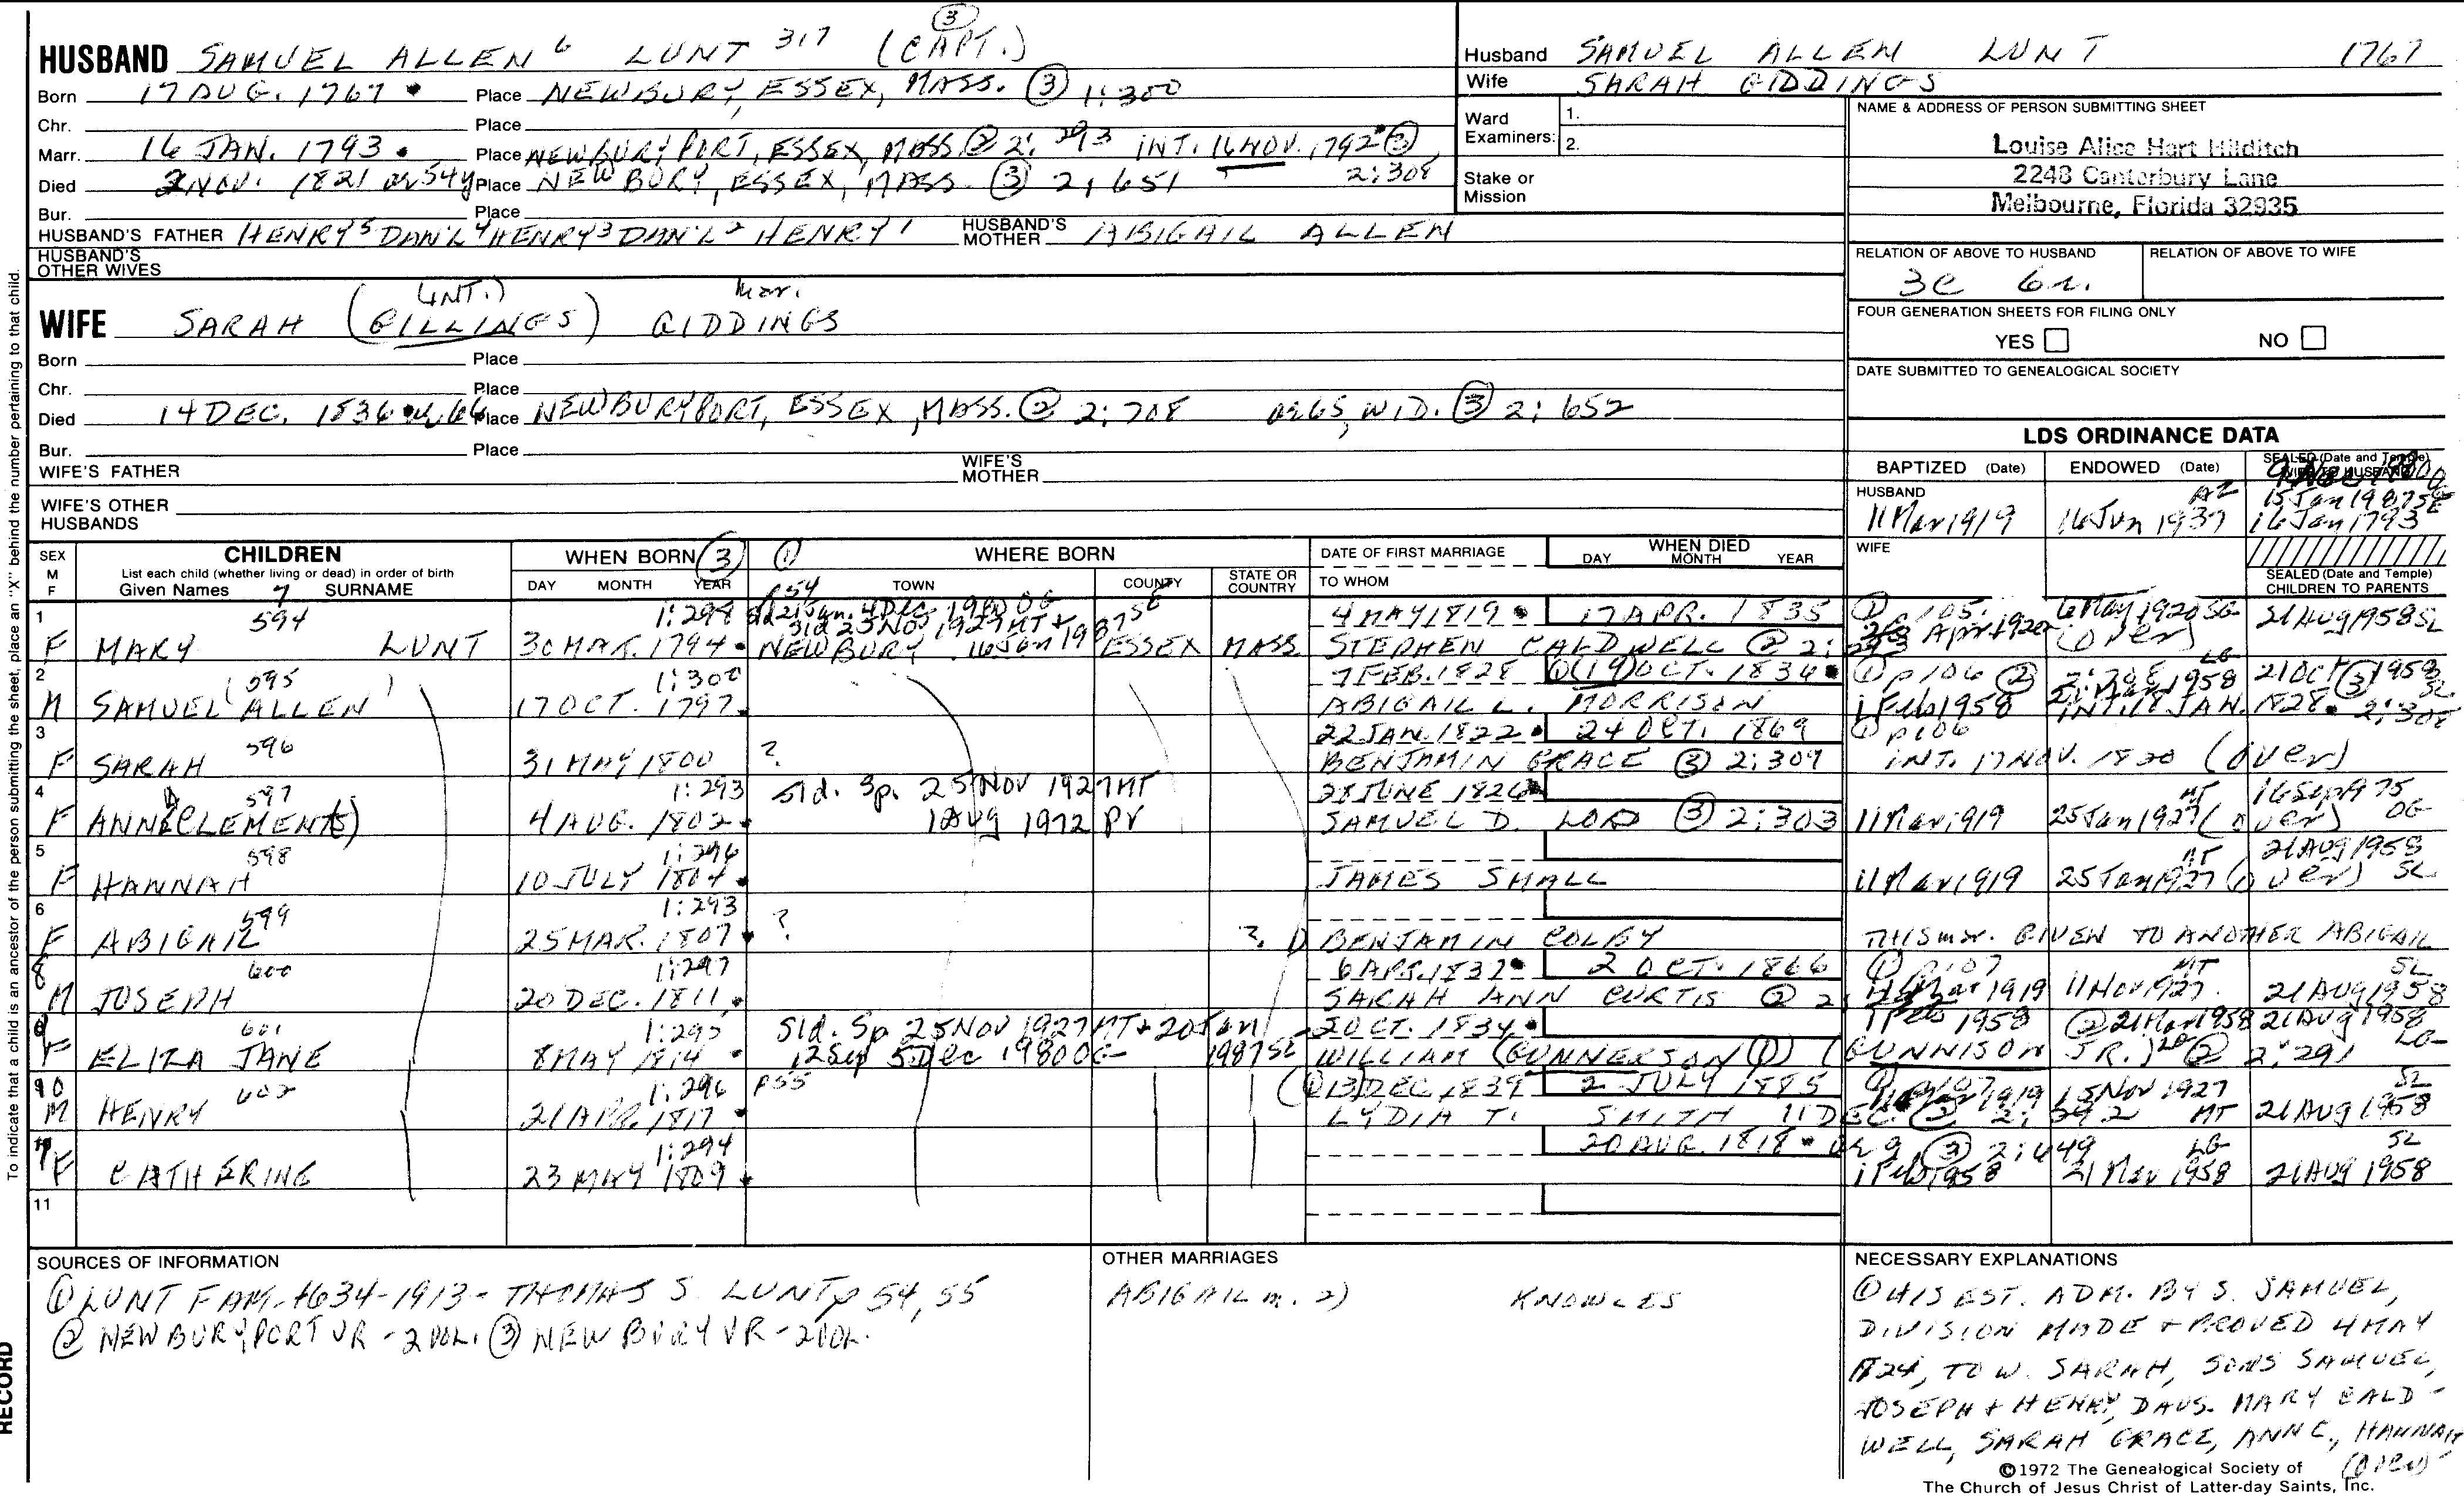 3
HUSBAND SAMUEL ALLEN 6 LUNT 317 (CAPT.)
Born 17 AUG. 1767 Place NEWBURY, ESSEX, MASS. 3 1:300
Chr. Place
Marr. 16 JAN. 1793 Place NEWBURYPORT, ESSEX, MASS. 2 2: 293 INT. 16 NOV. 1792 3
Died 2 NOV. 1821 ae 54y Place NEWBURY, ESSEX, MASS. 3 2:651 2:308
Bur. Place
HUSBAND'S FATHER HENRY 5 DAN'L 4 HENRY 3 DAN'L 2 HENRY 1 HUSBAND'S MOTHER ABIGAIL ALLEN
HUSBAND'S OTHER WIVES
(INT.) mar.
WIFE SARAH (GILLINGS) GIDDINGS
Born Place
Chr. Place
Died 14 DEC. 1836 66 Place NEWBURYPORT, ESSEX, MASS. 2 2:708 ae 65, WID. 3 2:652
Bur. Place
WIFE'S FATHER WIFE'S MOTHER
WIFE'S OTHER HUSBANDS
Husband SAMUEL ALLEN LUNT 1767
Wife SARAH GIDDINGS
Ward Examiners: 1.
2.
Stake or Mission
NAME & ADDRESS OF PERSON SUBMITTING SHEET
Louise Alice Hart Hilditch
2248 Canterbury Lane
Melbourne, Florida 32935
RELATION OF ABOVE TO HUSBAND RELATION OF ABOVE TO WIFE
3c 6r.
FOUR GENERATION SHEETS FOR FILING ONLY
YES NO
DATE SUBMITTED TO GENEALOGICAL SOCIETY
LDS ORDINANCE DATA
BAPTIZED (Date) ENDOWED (Date) SEALED (Date and Temple) WIFE TO HUSBAND
HUSBAND AZ 15 Jan 1987 SL
11 Mar 1919 16 Jun 1937 16 Jan 1793
WIFE
SEALED (Date and Temple) CHILDREN TO PARENTS
SEX M F CHILDREN WHEN BORN 3 1 WHERE BORN DATE OF FIRST MARRIAGE WHEN DIED
List each child (whether living or dead) in order of birth
Given Names 7 SURNAME DAY MONTH YEAR TOWN COUNTY STATE OR COUNTRY TO WHOM DAY MONTH YEAR
p54
1 594 1:298 4 MAY 1819 17 APR. 1835 1 p105. 6 May 1920 SG 21 Aug 1958 SL
sld 23 Nov 1927 MT +
F MARY LUNT 30 MAR. 1794 NEWBURY 16 Jan 1987 SL ESSEX MASS. STEPHEN CALDWELL 2 2: 293 Apr 1920 (over)
2 595 1:300 7 FEB. 1828 1 (19) OCT. 1836 1 p106 2 2:708 LG 21 OCT 1958 SL
M SAMUEL ALLEN 17 OCT. 1797 ABIGAIL L. MORRISON 1 Feb 1958 INT. 18 JAN. 1828. 3 2:308
3 596 22 JAN. 1822 24 OCT. 1869 1 p106
F SARAH 31 MAY 1800 ? BENJAMIN GRACE 3 2:309 INT. 17 NOV. 1820 (over)
4 597 1:293 Sld. Sp. 25 NOV 1927 MT 28 JUNE 1826 MT 16 Sep 1975
F ANN (CLEMENTS) 4 AUG. 1802 1 Aug 1972 PV SAMUEL D. LORD 3 2:303 11 Mar 1919 25 Jan 1927 (over) OG
5 598 1:296 MT 21 AUG 1958
F HANNAH 10 JULY 1804 JAMES SMALL 11 Mar 1919 25 Jan 1927 (over) SL
6 599 1:293
F ABIGAIL 25 MAR. 1807 ? ? BENJAMIN COLBY THIS mar. GIVEN TO ANOTHER ABIGAIL
8 600 1:297 6 APR. 1837 2 OCT. 1866 1 p107 MT SL
M JOSEPH 20 DEC. 1811 SARAH ANN CURTIS 2 2: 11 Mar 1919 11 Nov 1927 21 AUG 1958
9 601 1:295 Sld. Sp 25 NOV 1927 MT + 20 Jan 1987 SL OCT. 1834 1 Feb 1958 21 Mar 1958 21 Aug 1958
F ELIZA JANE 8 MAY 1814 12 Sep 5 Dec 1980 OG WILLIAM (GUNNERSON 1) (GUNNISON JR.) 2 2:291 LG
10 602 1:296 p55 1 13 DEC 1839 2 JULY 1885 1 p107 15 Nov 1927 SL
M HENRY 21 APR. 1817 LYDIA T. SMITH 11 DEC. 2 2: 292 MT 21 AUG 1958
7 1:294 20 AUG. 1818 ae 9 3 2:649 LG SL
F CATHERINE 23 MAY 1809 1 Feb 1958 21 Mar 1958 21 AUG 1958
11
SOURCES OF INFORMATION
1 LUNT FAM. 1634-1913 - THOMAS S. LUNT p 54, 55
2 NEWBURYPORT VR - 2 VOL. 3 NEWBURY VR - 2 VOL.
OTHER MARRIAGES
ABIGAIL m. 2) KNOWLES
NECESSARY EXPLANATIONS
1 HIS EST. ADM. BY S. SAMUEL,
DIVISION MADE + PROVED 4 MAY
1824, TO W. SARAH, SONS SAMUEL,
JOSEPH + HENRY, DAUS. MARY CALD-
WELL, SARAH GRACE, ANN C., HANNAH,
(over)
©1972 The Genealogical Society of
The Church of Jesus Christ of Latter-day Saints, Inc.
To indicate that a child is an ancestor of the person submitting the sheet, place an "X" behind the number pertaining to that child.
RECORD